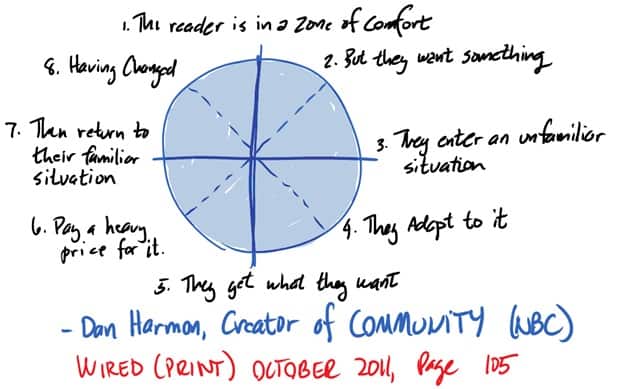 1. The reader is in a Zone of Comfort
2. But they want something
3. They enter an unfamiliar
situation
4. They Adapt to it
5. They get what they want
6. Pay a heavy
price for it.
7. Then return to
their familiar
situation
8. Having Changed
- Dan Harmon, Creator of COMMUNITY (NBC)
WIRED (PRINT) OCTOBER 2011, Page 105